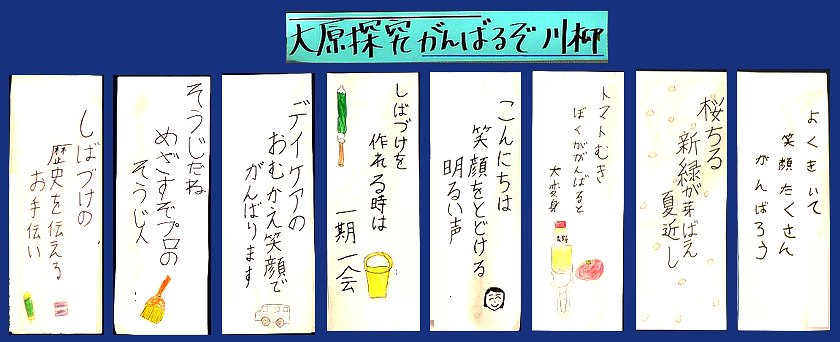 大原探究がんばるぞ川柳
よくきいて
笑顔たくさん
がんばろう
桜ちる
新緑が芽ばえ
夏近し
トマトむき
ぼくががんばると
大変身
こんにちは
笑顔をとどける
明るい声
しばづけを
作れる時は
一期一会
デイケアの
おむかえ笑顔で
がんばります
そうじだね
めざすぞプロの
そうじ人
しばづけの
歴史を伝える
お手伝い